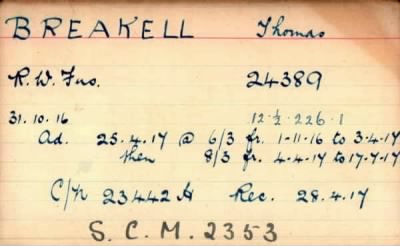 BREAKELL Thomas
R.W.Fus. 24389
31.10.16 12·½·226·1
Ad. 25.4.17 @ 6/3 fr. 1-11-16 to 3-4-17
then 8/3 fr. 4-4-17 to 17-7-17
C/N 23442 H Rec. 28.4.17
S.C.M. 2353